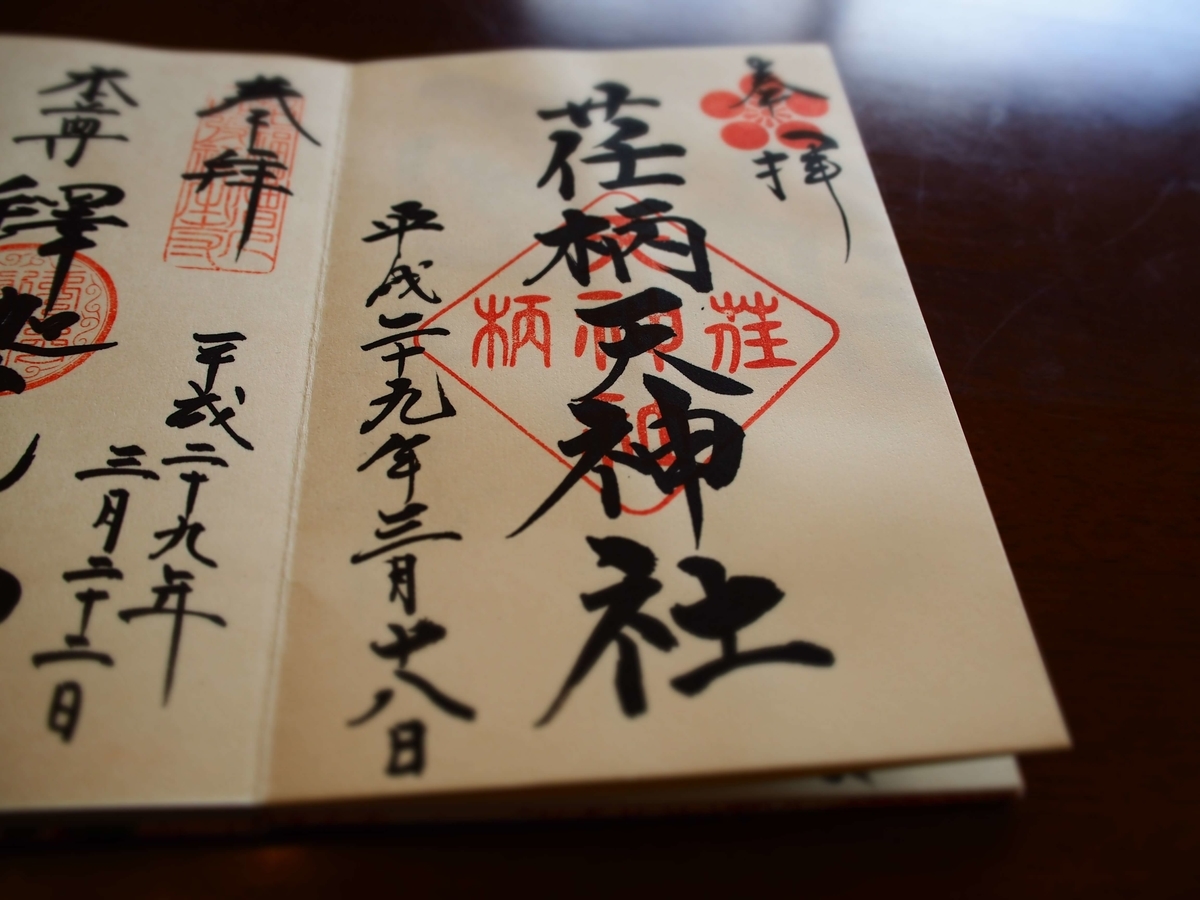 奉拝
荏柄天神社
荏
柄
平成二十九年三月廿八日
奉拝
平成二十九年
三月二十二日
本尊
釋迦